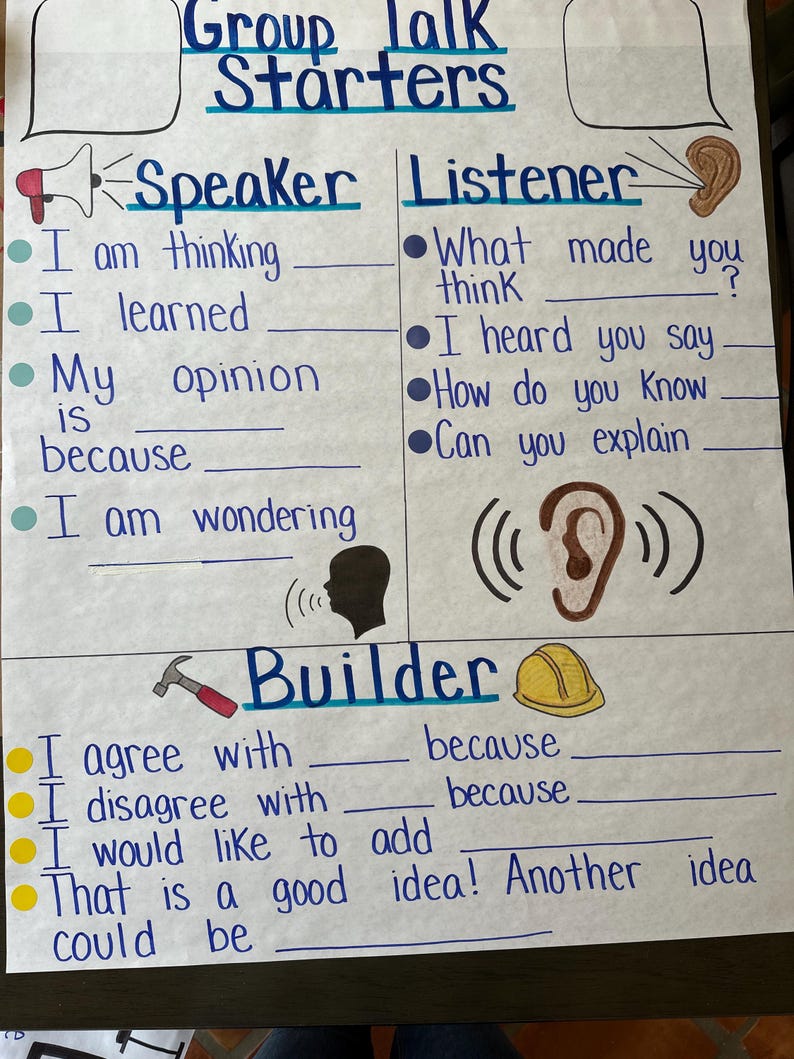 Group Talk
Starters
Speaker
I am thinking ______
I learned ______
My opinion
is ______
because ______
I am wondering
______
Listener
What made you
think ______?
I heard you say ___
How do you know ___
Can you explain ___
Builder
I agree with ____ because ______
I disagree with ____ because ______
I would like to add ______
That is a good idea! Another idea
could be ______